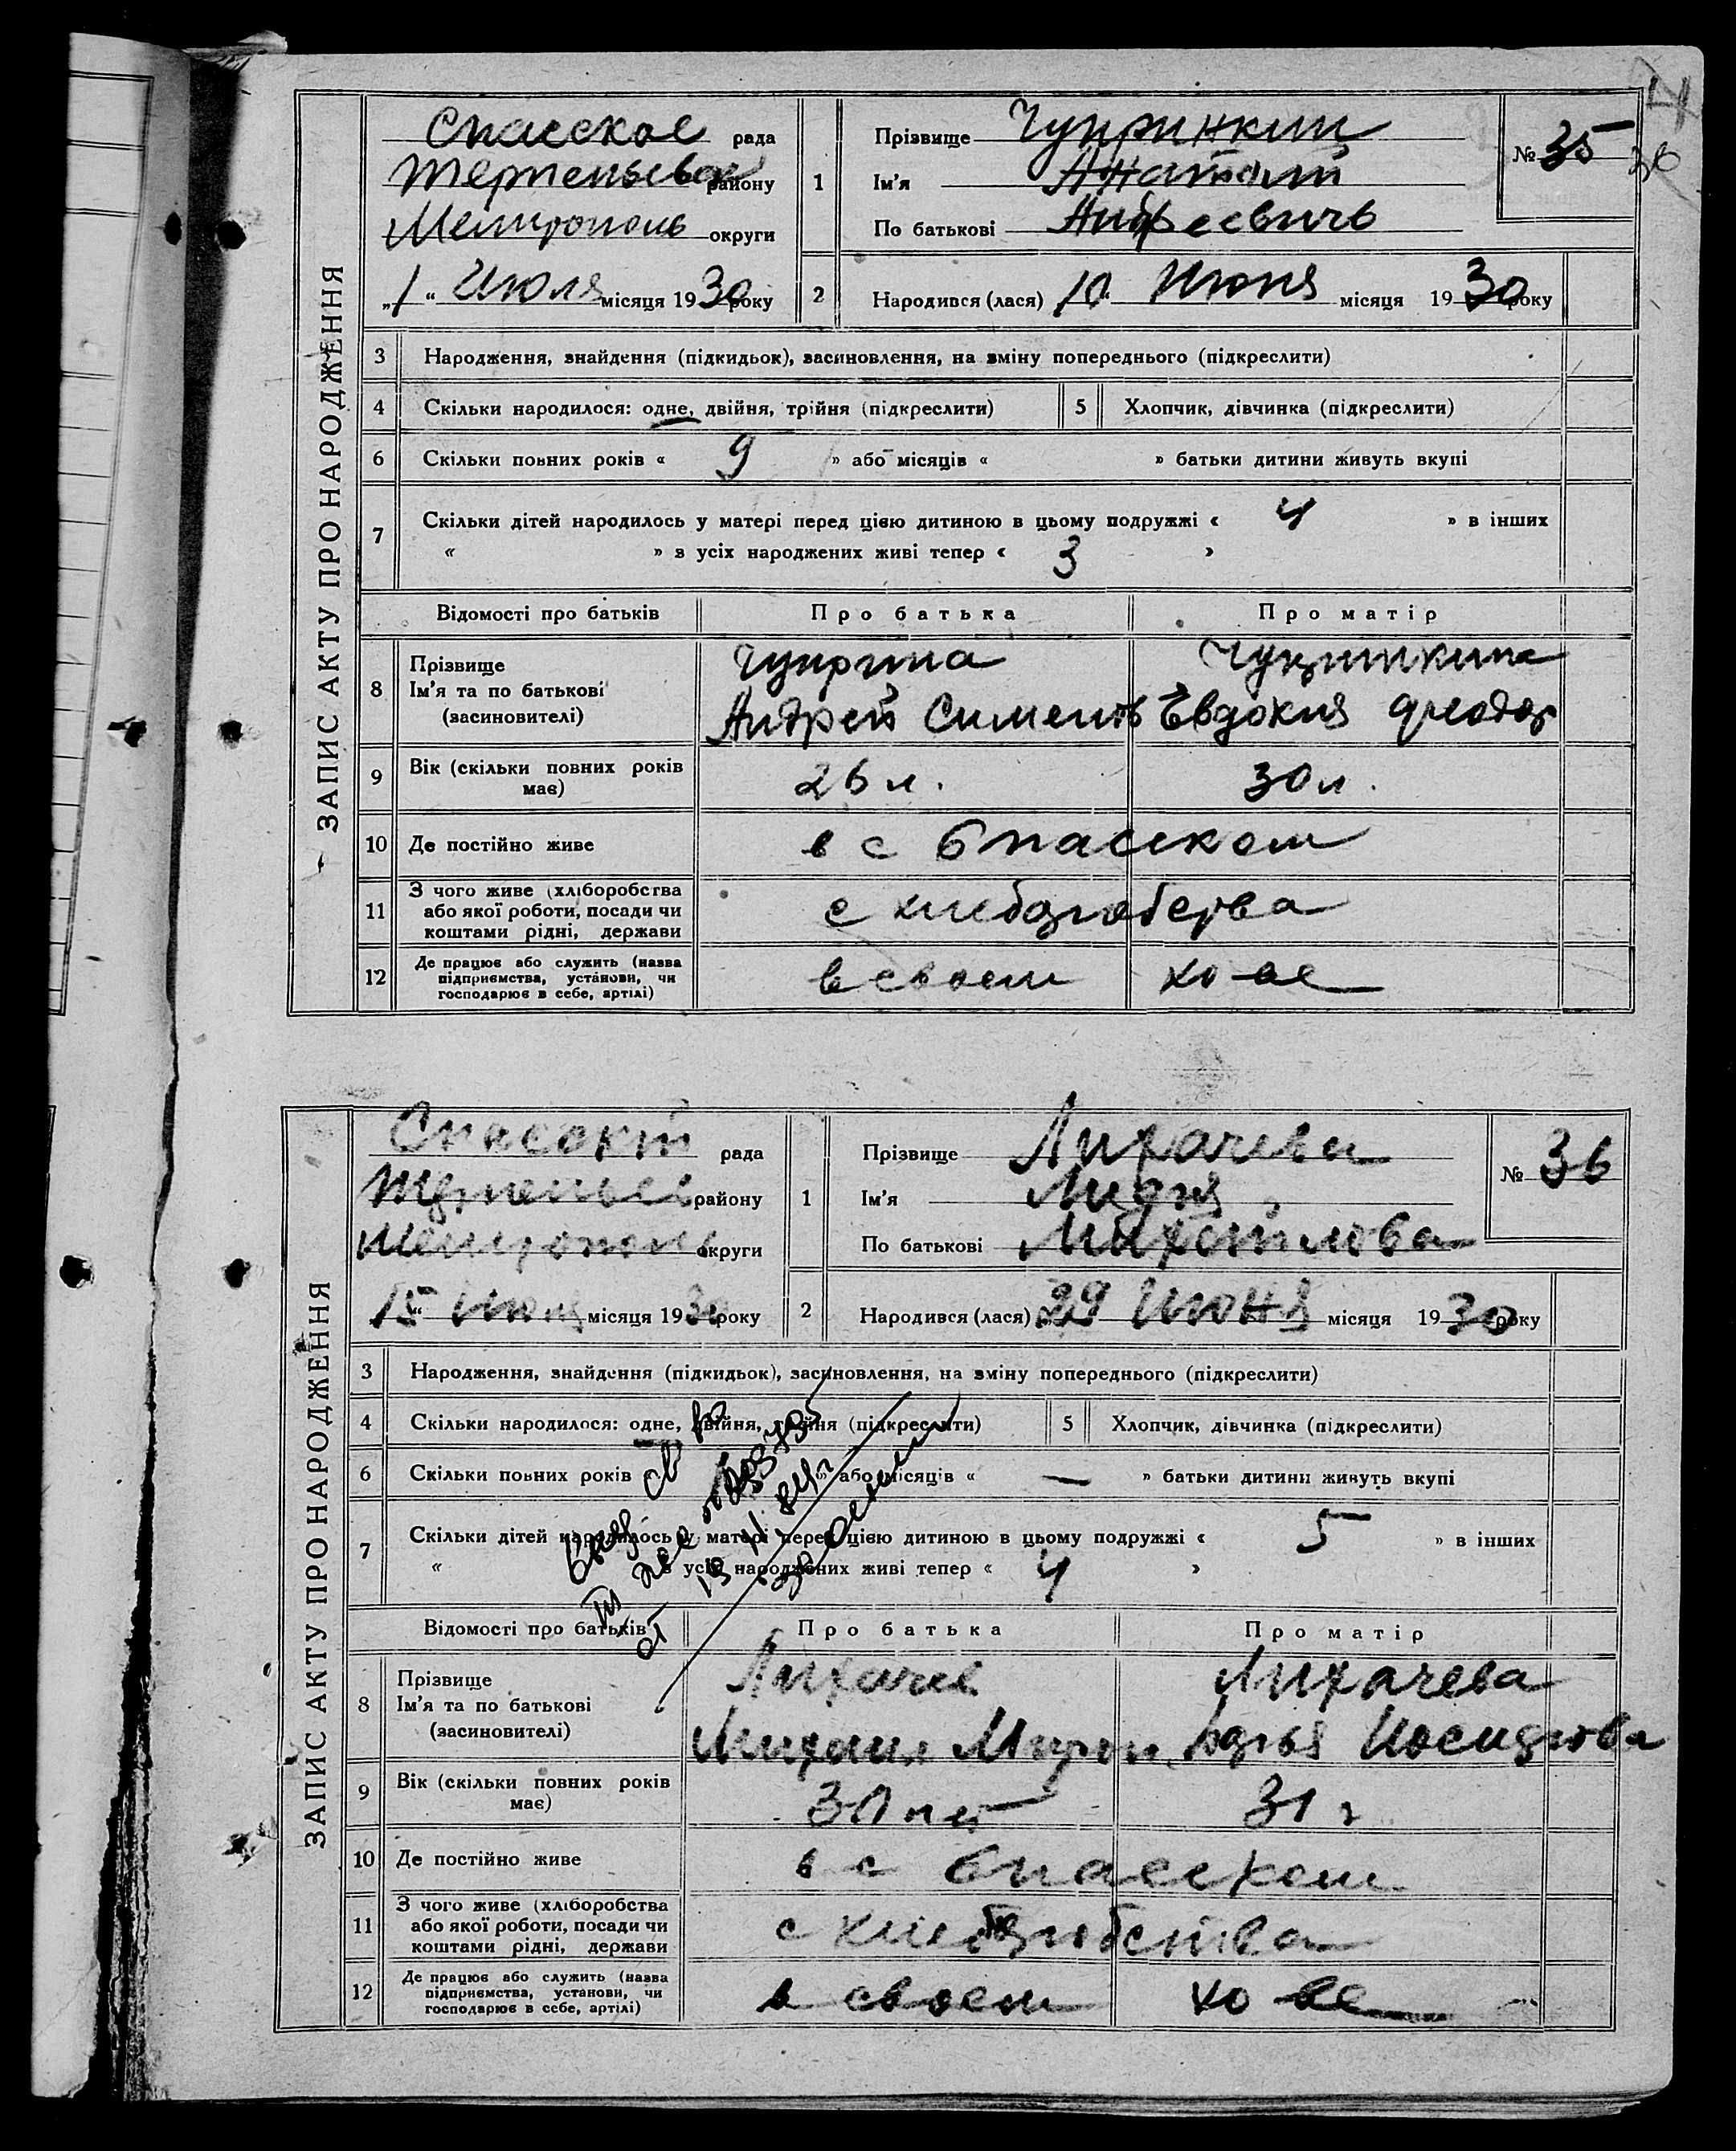 ЗАПИС АКТУ ПРО НАРОДЖЕННЯ
Спасское рада
Терпеньевск району
Мелитополь округи
„1“ Июля місяця 1930 року
1 Прізвище Чупринкин
Ім'я Анатолий
По батькові Андреевичь
№ 35
36
2 Народився (лася) 10 Июня місяця 1930 року
3 Народження, знайдення (підкидьок), засиновлення, на зміну попереднього (підкреслити)
4 Скільки народилося: одне, двійня, трійня (підкреслити) 5 Хлопчик, дівчинка (підкреслити)
6 Скільки повних років « 9 » або місяців « » батьки дитини живуть вкупі
7 Скільки дітей народилось у матері перед цією дитиною в цьому подружжі « 4 » в інших
« » з усіх народжених живі тепер « 3 »
Відомості про батьків Про батька Про матір
8 Прізвище Ім'я та по батькові (засиновителі)
Чуприна Чупринкина
Андрей Сименов Евдокия Феодор
9 Вік (скільки повних років має) 26 л. 30 л.
10 Де постійно живе в с Спасском
11 З чого живе (хліборобства або якої роботи, посади чи коштами рідні, держави с хлеборобства
12 Де працює або служить (назва підприємства, установи, чи господарює в себе, артілі) в своем хо-ве
ЗАПИС АКТУ ПРО НАРОДЖЕННЯ
Спасокой рада
Терпеньев району
Мелитополь округи
15 “ Июля місяця 1930 року
1 Прізвище Лихачева
Ім'я Лидия
По батькові Михайлова
№ 36
2 Народився (лася) 29 Июня місяця 1930 року
3 Народження, знайдення (підкидьок), засиновлення, на зміну попереднього (підкреслити)
4 Скільки народилося: одне, двійня, трійня (підкреслити) 5 Хлопчик, дівчинка (підкреслити)
6 Скільки повних років « » або місяців « — » батьки дитини живуть вкупі
7 Скільки дітей народилось у матері перед цією дитиною в цьому подружжі « 5 » в інших
« » з усіх народжених живі тепер « 4 »
Відомості про батьків Про батька Про матір
8 Прізвище Ім'я та по батькові (засиновителі)
Лихачев Лихачева
Михаил Мирон Дарья
9 Вік (скільки повних років має) 31 г
10 Де постійно живе в с Спасском
11 З чого живе (хліборобства або якої роботи, посади чи коштами рідні, держави с хлеборобства
12 Де працює або служить (назва підприємства, установи, чи господарює в себе, артілі) в своем хо-ве